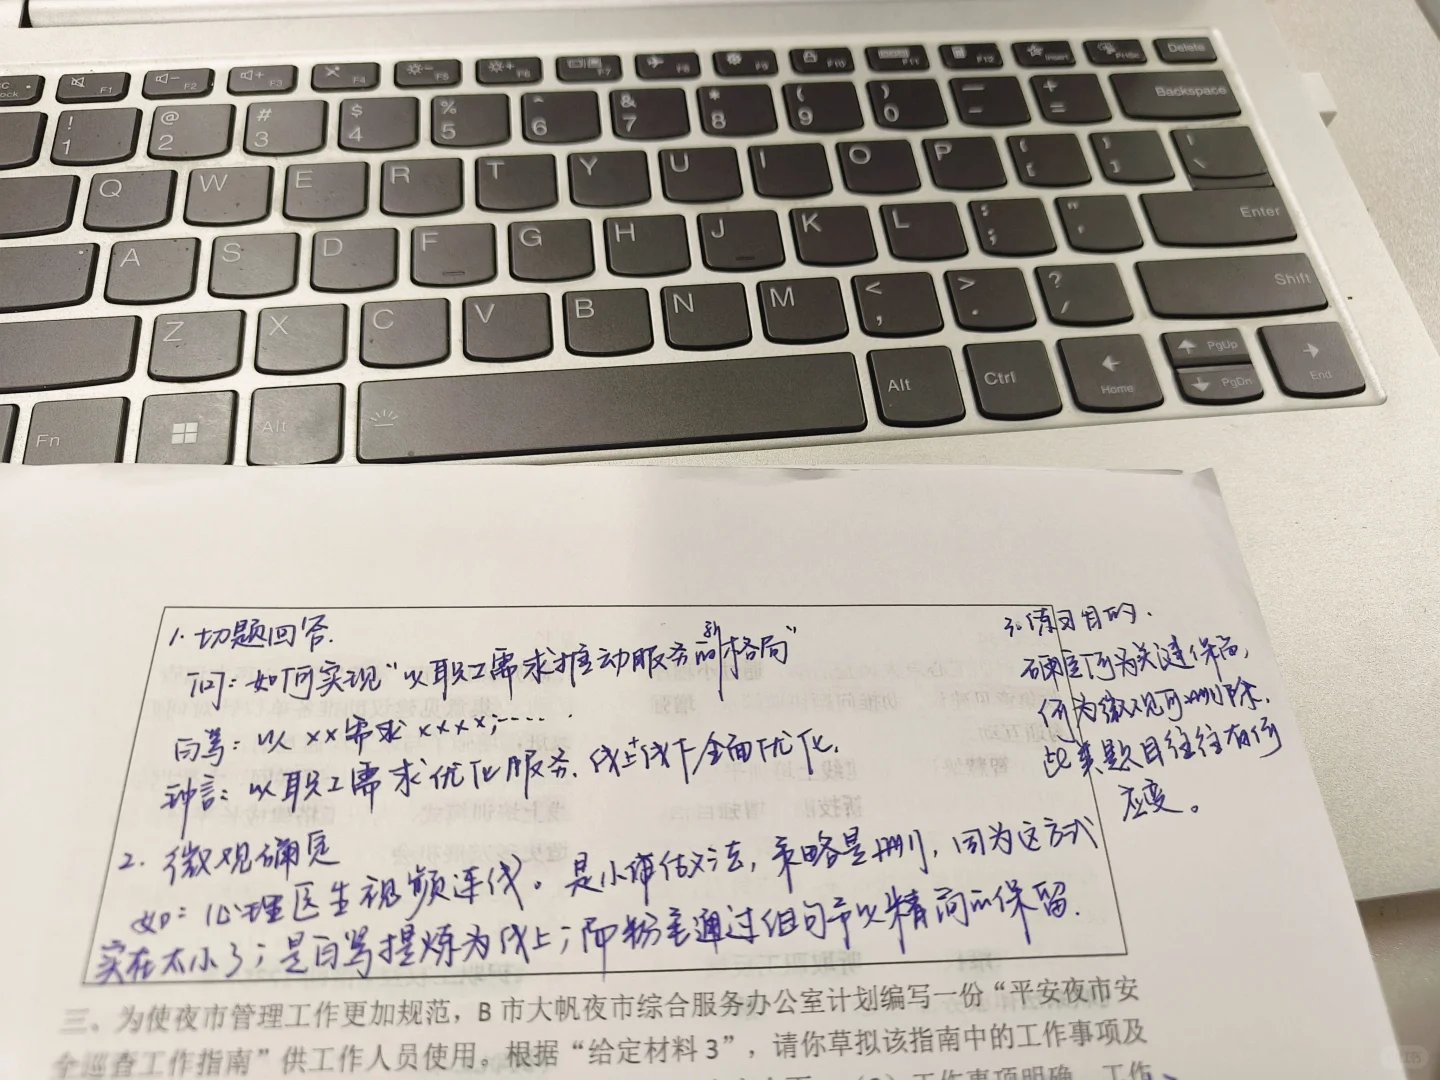 F1 F2 F3 F4 F5 F6 F7 F8 F9 F10 F11 F12 Insert Delete
! 1 @ 2 # 3 $ 4 % 5 ^ 6 & 7 * 8 ( 9 ) 0 — - + = Backspace
Q W E R T Y U I O P { [ } ] | \
A S D F G H J K L : ; " ' Enter
Z X C V B N M < , > . ? / Shift
Fn Alt Alt Ctrl ← Home ↑ PgUp ↓ PgDn → End
1. 切题回答.
问: 如何实现“以职工需求推动服务新格局”
白骂: 以××需求××××;……
钟言: 以职工需求优化服务. 线上+线下全面优化.
2. 微观确定
如: 心理医生视频连线。是小 估义法, 策略是删, 因为这方式
实在太小了; 是白骂提炼为线上; 而粉笔通过组句予以精简的保留.
3. 练习目的.
确定何为关键保留,
何为微观可删除.
此类题目往往有何
应变。
三、为使夜市管理工作更加规范，B 市大帆夜市综合服务办公室计划编写一份“平安夜市安
全巡查工作指南”供工作人员使用。根据“给定材料 3”，请你草拟该指南中的工作事项及
工作事项明确，工作